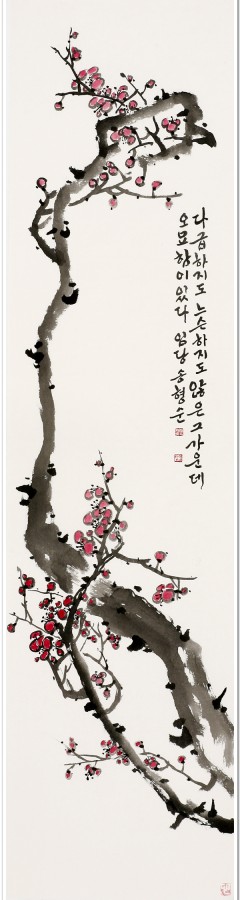 다급하지도 느슨하지도 않은 그 가운데
오묘함이 있다 임당 송형순